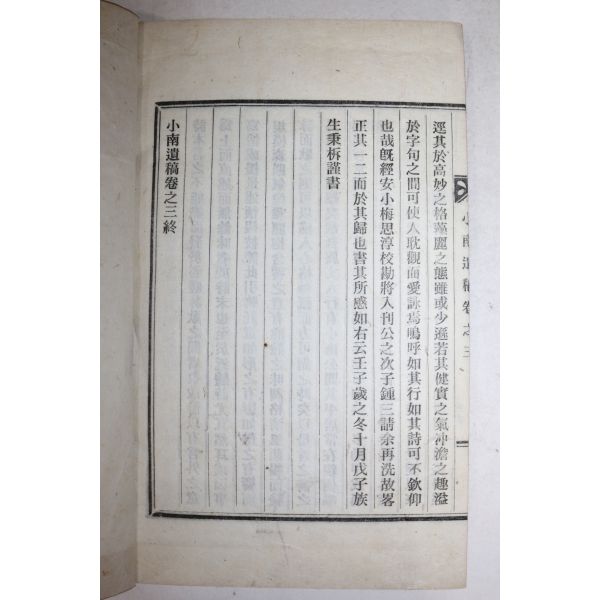 小南遺稿卷之三
逕其於高妙之格藻麗之態雖或少遜若其健實之氣冲澹之趣溢
於字句之間可使人耽觀而愛詠焉嗚呼如其行如其詩可不欽仰
也哉旣經安小梅思淳校勘將入刊公之次子鍾三請余再洗故畧
正其一二而於其歸也書其所感如右云壬子歲之冬十月戊子族
生秉柝謹書
小南遺稿卷之三終